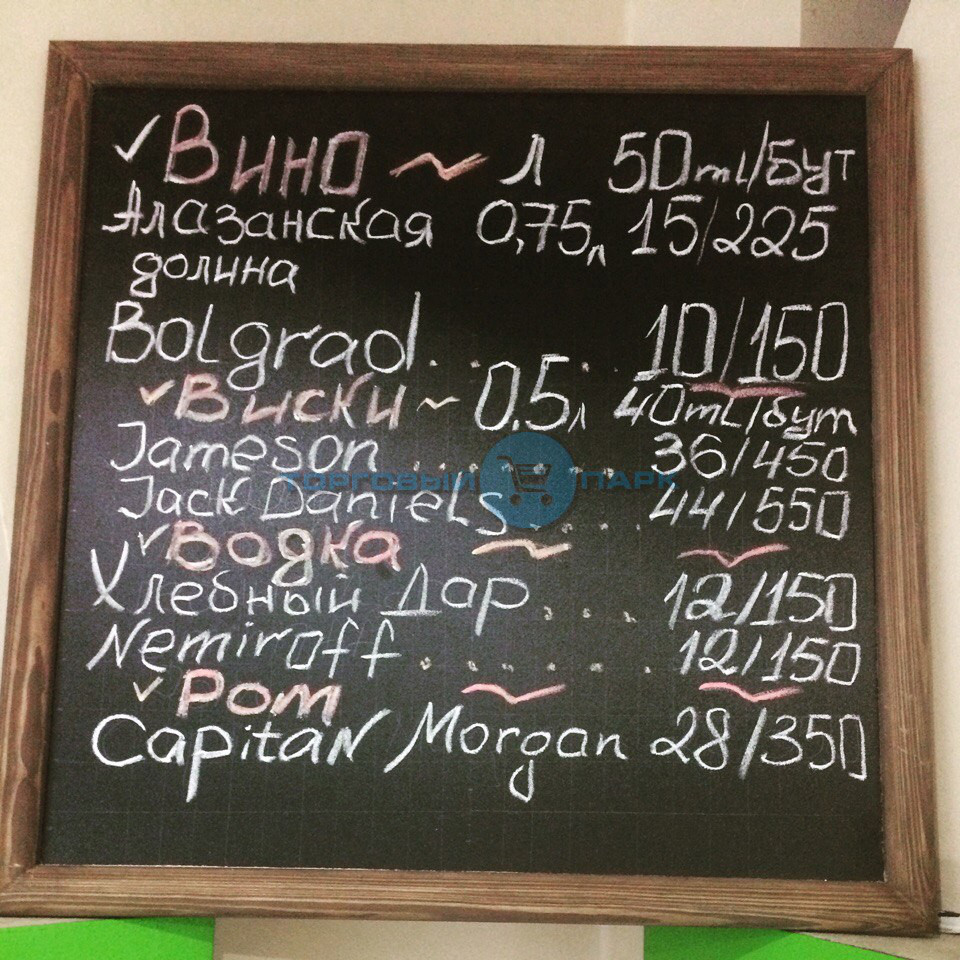 ✓ Вино ~ л 50ml/бут
Алазанская 0,75л 15/225
долина
Bolgrad...... 10/150
✓ Виски ~ 0.5л 40ml/бут
Jameson ........ 36/450
ТОРГОВЫЙ ПАРК
Jack Daniels..... 44/550
✓ Водка
Хлебный Дар.... 12/150
Nemiroff...... 12/150
✓ Ром
Capitan Morgan 28/350